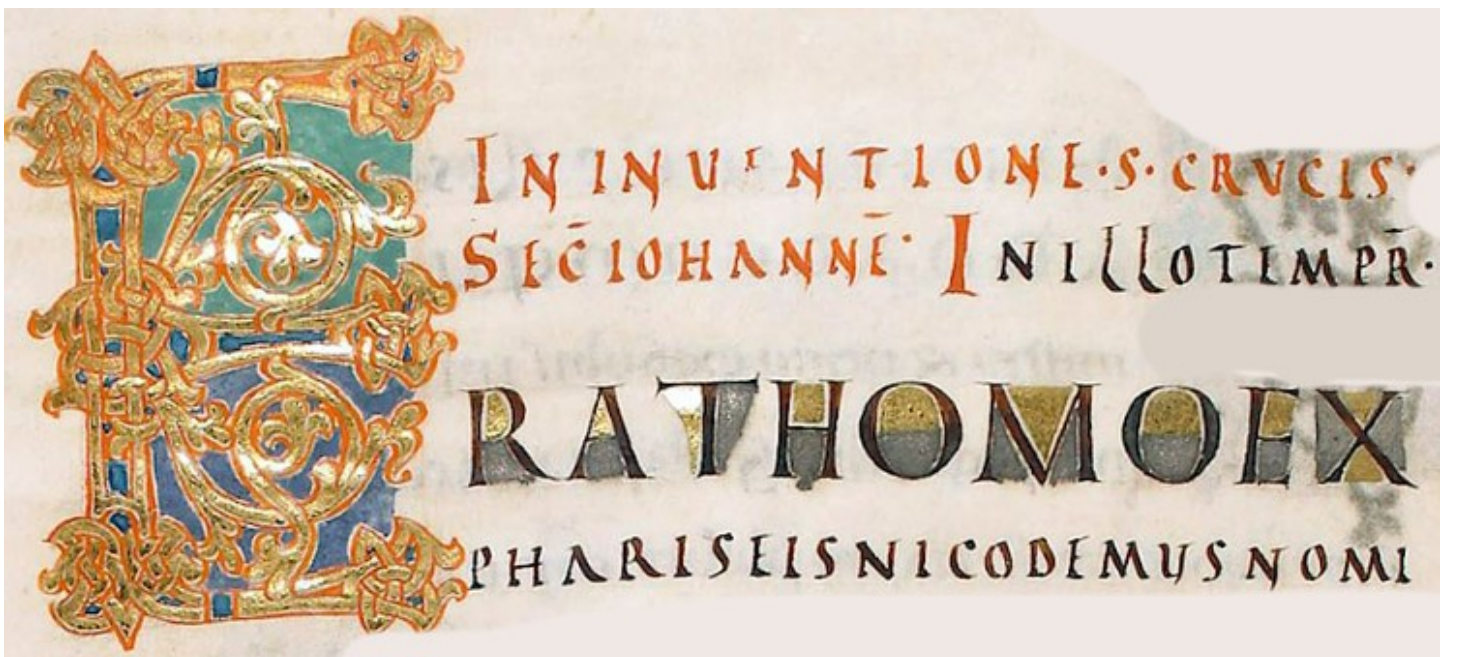 IN INVENTIONE·S·CRVCIS·
SEC̄ IOHANNĒ· IN ILLO TEMPR̄·
ERAT HOMO EX
PHARISEIS NICODEMUS NOMI